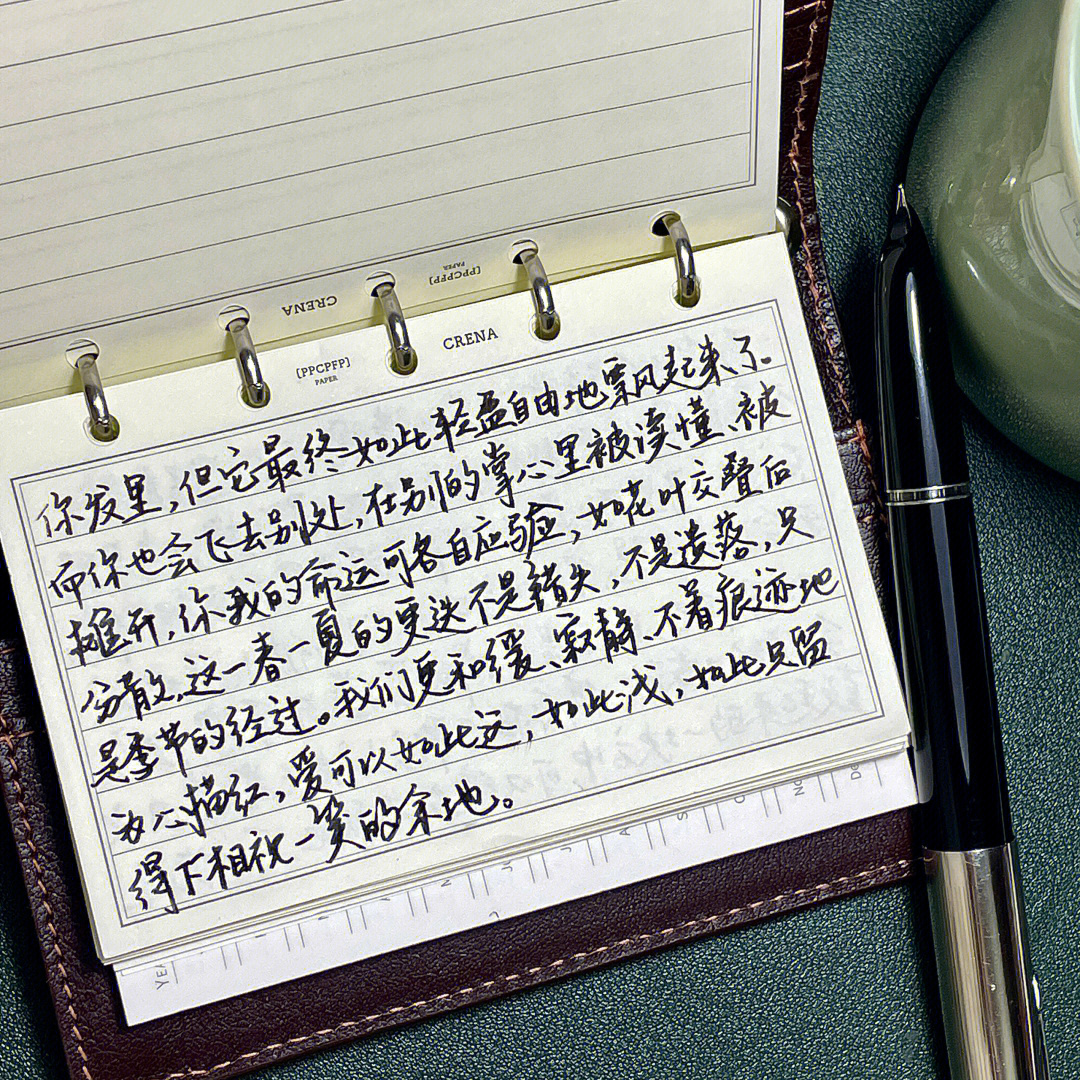 CRENA
[PPCPFP]
PAPER
[PPCPFP]
PAPER
CRENA
你发里,但它最终如此轻盈自由地飘起来了.
而你也会飞去别处,在别的掌心里被读懂、被
摊开,你我的命运可各自应验,如花叶交叠后
分散,这一春一夏的更迭不是错失,不是遗落,只
是季节的经过。我们更和缓、寂静、不着痕迹地
为心描红,爱可以如此远,如此浅,如此只留
得下相祝一笑的余地。
YEA